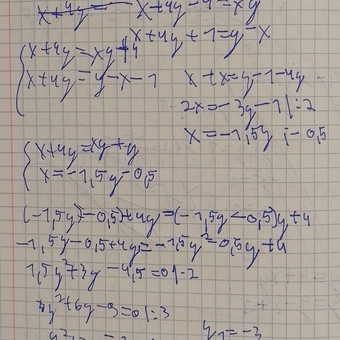 x+4y= x+4y-4=xy
x+4y+1=y-x
x+4y=xy+4
x+4y=y-x-1 x+x=y-1-4y
2x=-3y-1 |:2
x=-1,5y -0,5
x+4y=xy+y
x=-1,5y-0,5
(-1,5y-0,5)+4y=(-1,5y-0,5)y+4
-1,5y-0,5+4y=-1,5y²-0,5y+4
1,5y²+3y-4,5=0 |·2
y²+6y-9=0 |:3
y₁=-3